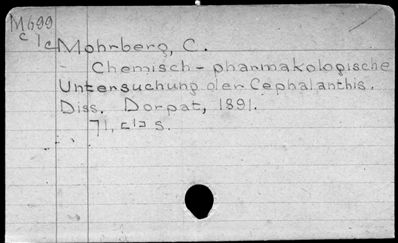 M699
c
Mohrberg, C.
- Chemisch-pharmakologische
Untersuchung der Cephalanthis.
Diss. Dorpat, 1891.
71, s.